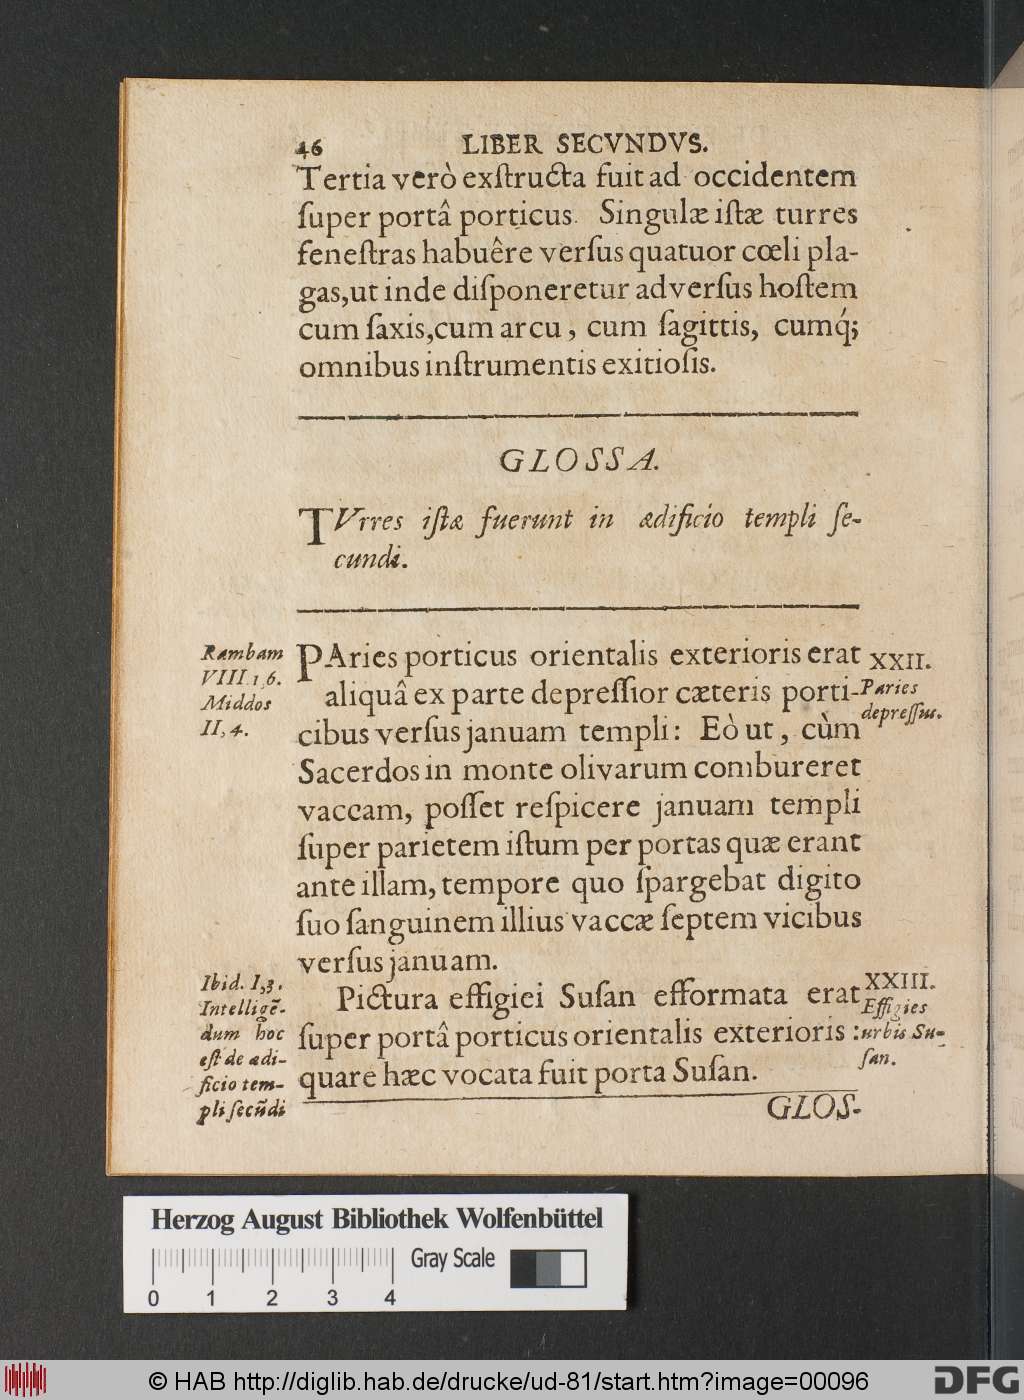 46 LIBER SECVNDVS.
Tertia verò exſtructa fuit ad occidentem
ſuper portâ porticus. Singulæ iſtæ turres
feneſtras habuêre verſus quatuor cœli pla-
gas, ut inde diſponeretur adverſus hoſtem
cum ſaxis, cum arcu, cum ſagittis, cumq́;
omnibus inſtrumentis exitioſis.
GLOSSA.
TVrres iſtæ fuerunt in ædificio templi ſe-
cundi.
Rambam
VIII. 1, 6.
Middos
II, 4.
PAries porticus orientalis exterioris erat
aliquâ ex parte depreſſior cæteris porti-
cibus verſus januam templi: Eò ut, cùm
Sacerdos in monte olivarum combureret
vaccam, poſſet reſpicere januam templi
ſuper parietem iſtum per portas quæ erant
ante illam, tempore quo ſpargebat digito
ſuo ſanguinem illius vaccæ ſeptem vicibus
verſus januam.
XXII.
Paries
depreſſus.
Ibid. I, 3.
Intelligẽ-
dum hoc
eſt de ædi-
ficio tem-
pli ſecũdi
Pictura effigiei Suſan efformata erat
ſuper portâ porticus orientalis exterioris:
quare hæc vocata fuit porta Suſan.
XXIII.
Effigies
urbis Su-
ſan.
GLOS-
Herzog August Bibliothek Wolfenbüttel
Gray Scale
0 1 2 3 4
© HAB http://diglib.hab.de/drucke/ud-81/start.htm?image=00096
DFG